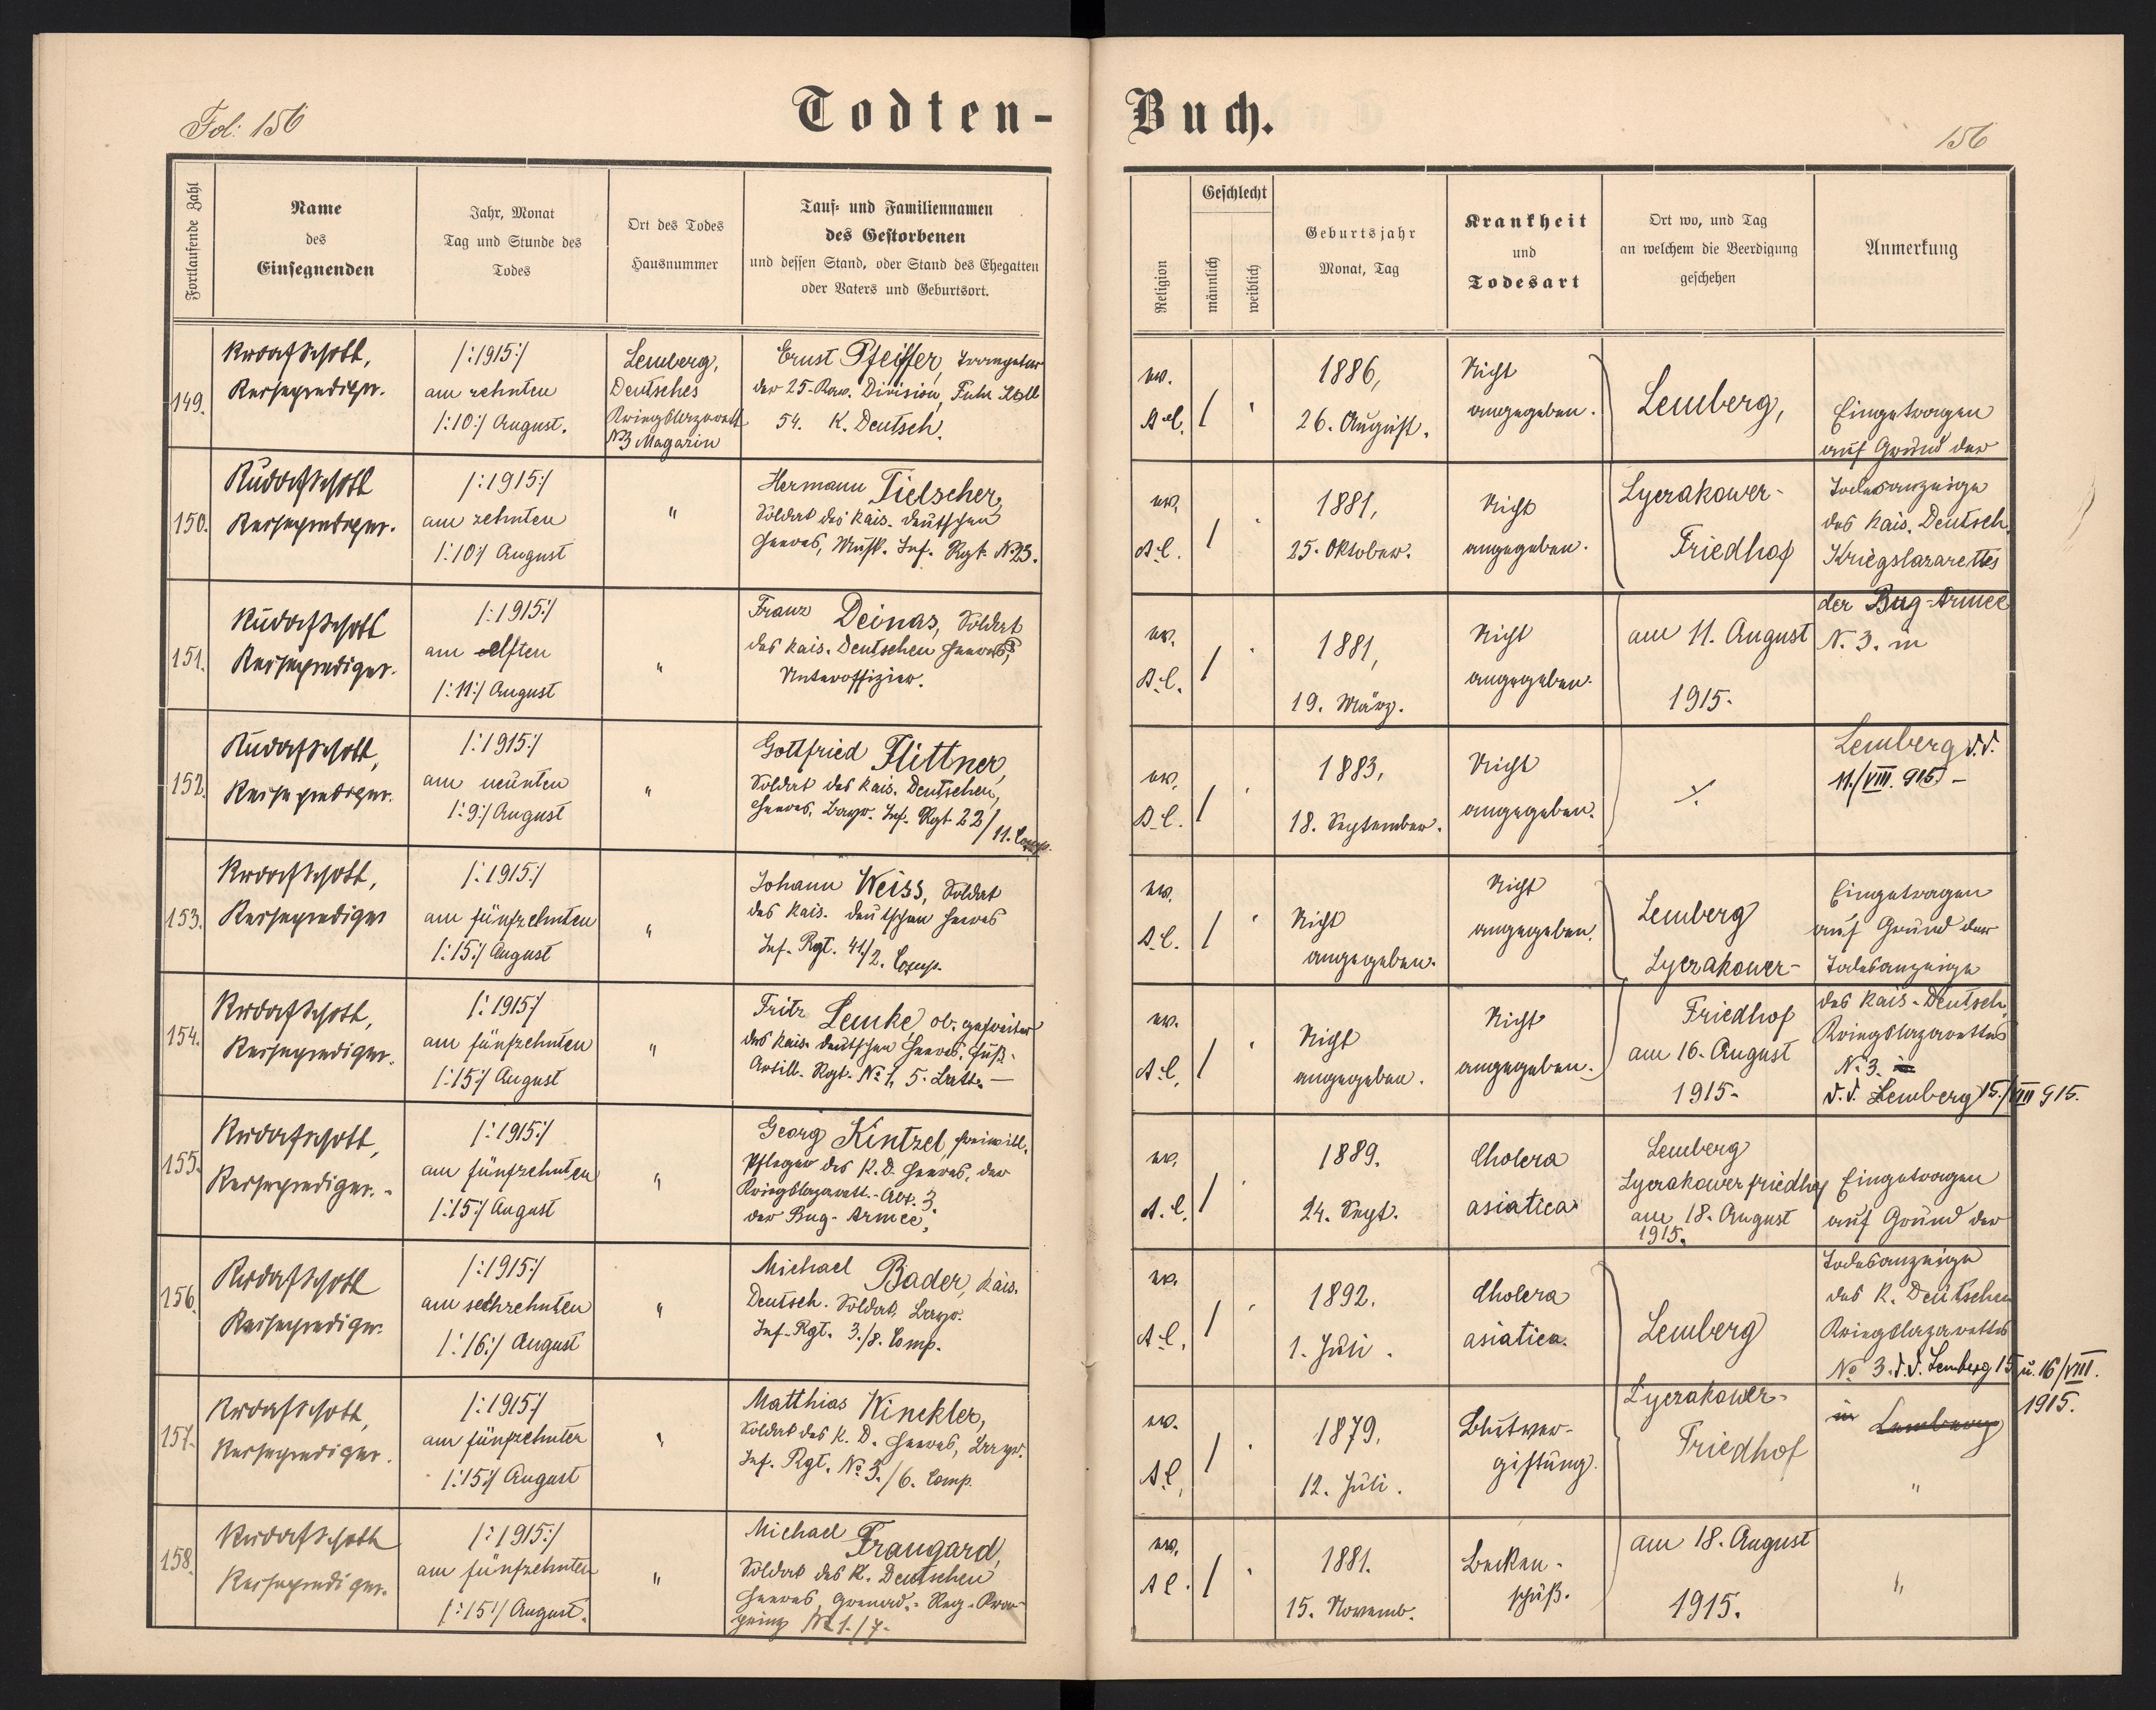 Fol: 156
Todten-
Buch.
156
Fortlaufende Zahl
Name
des
Einsegnenden
Jahr, Monat
Tag und Stunde des
Todes
Ort des Todes
Hausnummer
Tauf- und Familiennamen
des Gestorbenen
und dessen Stand, oder Stand des Ehegatten
oder Vaters und Geburtsort.
Religion
Geschlecht
männlich
weiblich
Geburtsjahr
Monat, Tag
Krankheit
und
Todesart
Ort wo, und Tag
an welchem die Beerdigung
geschehen
Anmerkung
149.
/:1915:/
am zehnten
/:10:/ August.
Lemberg,
Deutsches
Kriegslazarett
N3 Magazin
Ernst Pfeiffer,
der 25. Res. Division, Fuhr
54. K. Deutsch.
ev.
A.C.
/
1886,
26. August.
Nicht
angegeben.
Lemberg,
Eingetragen
auf Grund der
150.
/:1915:/
am zehnten
/:10:/ August
"
Hermann Tielscher,
Soldat des kais. deutschen
Heeres, Musk. Inf. Rgt. N23.
ev.
A.C.
/
1881,
25. Oktober.
Nicht
angegeben.
Lyczakower-
Friedhof
Todesanzeige
des Kais. Deutsch.
Kriegslazarettes
151.
/:1915:/
am elften
/:11:/ August
"
Franz Deinas, Soldat
des kais. Deutschen Heeres,
Unteroffizier.
ev.
A.C.
/
1881,
19. März.
Nicht
angegeben.
am 11. August
1915.
der Bug-Armee
N. 3. in
152.
/:1915:/
am neunten
/:9:/ August
"
Gottfried Flittner,
Soldat des kais. Deutschen,
Heeres, bayr. Inf. Rgt 22/11. Comp.
ev.
A.C.
/
1883,
18. September.
Nicht
angegeben.
Lemberg d.d.
11./VIII. 915. -
153.
/:1915:/
am fünfzehnten
/:15:/ August
"
Johann Weiss, Soldat
des kais. deutschen Heeres
Inf. Rgt. 41/2. Comp.
ev.
A.C.
/
Nicht
angegeben.
Nicht
angegeben.
Lemberg
Lyczakower-
Eingetragen
auf Grund der
Todesanzeige
154.
/:1915:/
am fünfzehnten
/:15:/ August
"
Fritz Lemke ob. gefreiter
des kais. deutschen Heeres, Fuß-
Artill. Rgt. No 1, 5. Batt. -
ev.
A.C.
/
Nicht
angegeben.
Nicht
angegeben.
Friedhof
am 16. August
1915.
des kais. Deutsch.
Kriegslazarettes
N. 3. in
d.d. Lemberg 15./VIII 915.
155.
/:1915:/
am fünfzehnten
/:15:/ August
"
Georg Kintzel, freiwill.
Pfleger des K.D. Heeres, der
Kriegslazarett.-Abt. 3.
der Bug-Armee,
ev.
A.C.
/
1889.
24. Sept.
Cholera
asiatica
Lemberg
Lyczakower friedhof
am 18. August
1915.
Eingetragen
auf Grund der
156.
/:1915:/
am sechzehnten
/:16:/ August
"
Michael Bader, kais.
Deutsch. Soldat, bayr.
Inf. Rgt. 3./8. Comp.
ev.
A.C.
/
1892.
1. Juli.
Cholera
asiatica.
Lemberg
Todesanzeige
des K. Deutschen
Kriegslazarettes
No 3. d.d. Lemberg 15. u. 16/VIII.
1915.
157.
/:1915:/
am fünfzehnten
/:15:/ August
"
Matthias Winckler,
Soldat des K. D. Heeres, bayr.
Inf. Rgt. No 3./6. Comp.
ev.
A.C.
/
1879.
12. Juli.
Blutver-
giftung.
Lyczakower-
Friedhof
in Lemberg
"
158.
/:1915:/
am fünfzehnten
/:15:/ August.
"
Michael Traugard,
Soldat des K. Deutschen
Heeres, Grenad.-Reg. Kron-
prinz N 1./7.
ev.
A.C.
/
1881.
15. Novemb.
Becken-
schuß.
am 18. August
1915.
"